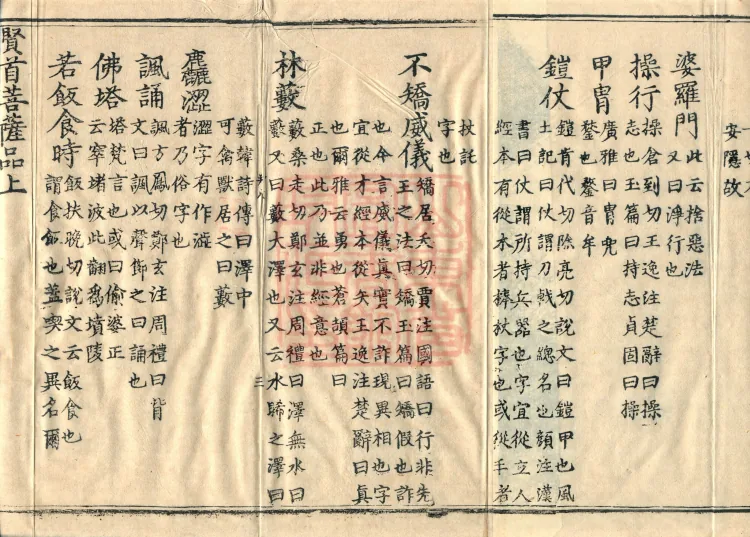 安隱故
婆羅門 此云捨惡法
又曰淨行也
操行 操倉到切王逸注楚辭曰操
志也玉篇曰持志貞固曰操
甲冑 廣雅曰冑兜
鍪也鍪音牟
鎧仗 鎧肯代切除亮切說文曰鎧甲也風
土記曰仗謂刀戟之總名也顏注漢
書曰仗謂所持兵器也字宜從立人
經本有從木者棒杖字也或從手者
扙託
字也
不矯威儀 矯居夭切賈注國語曰行非先
王之法曰矯玉篇曰矯假也詐
也今言威儀真實不詐現異相也字
宜從才經本從矢王逸注楚辭曰真
也爾雅云勇也蒼頡篇曰
正也此乃並非經意也
林藪 藪桑走切鄭玄注周禮曰澤無水曰
藪又曰藪大澤也又云水歸之澤曰
三
藪韓詩傳曰澤中
可禽獸居之曰藪
麤澀 澀字有作澁
者乃俗字也
諷誦 諷方鳳切鄭玄注周禮曰背
文曰諷以聲節之曰誦也
佛塔 塔梵言也或曰偷婆正
云窣堵波此翻爲墳陵
若飯食時 飯扶晚切說文云飯食也
謂食飯也盖喫之異名爾
賢首菩薩品上